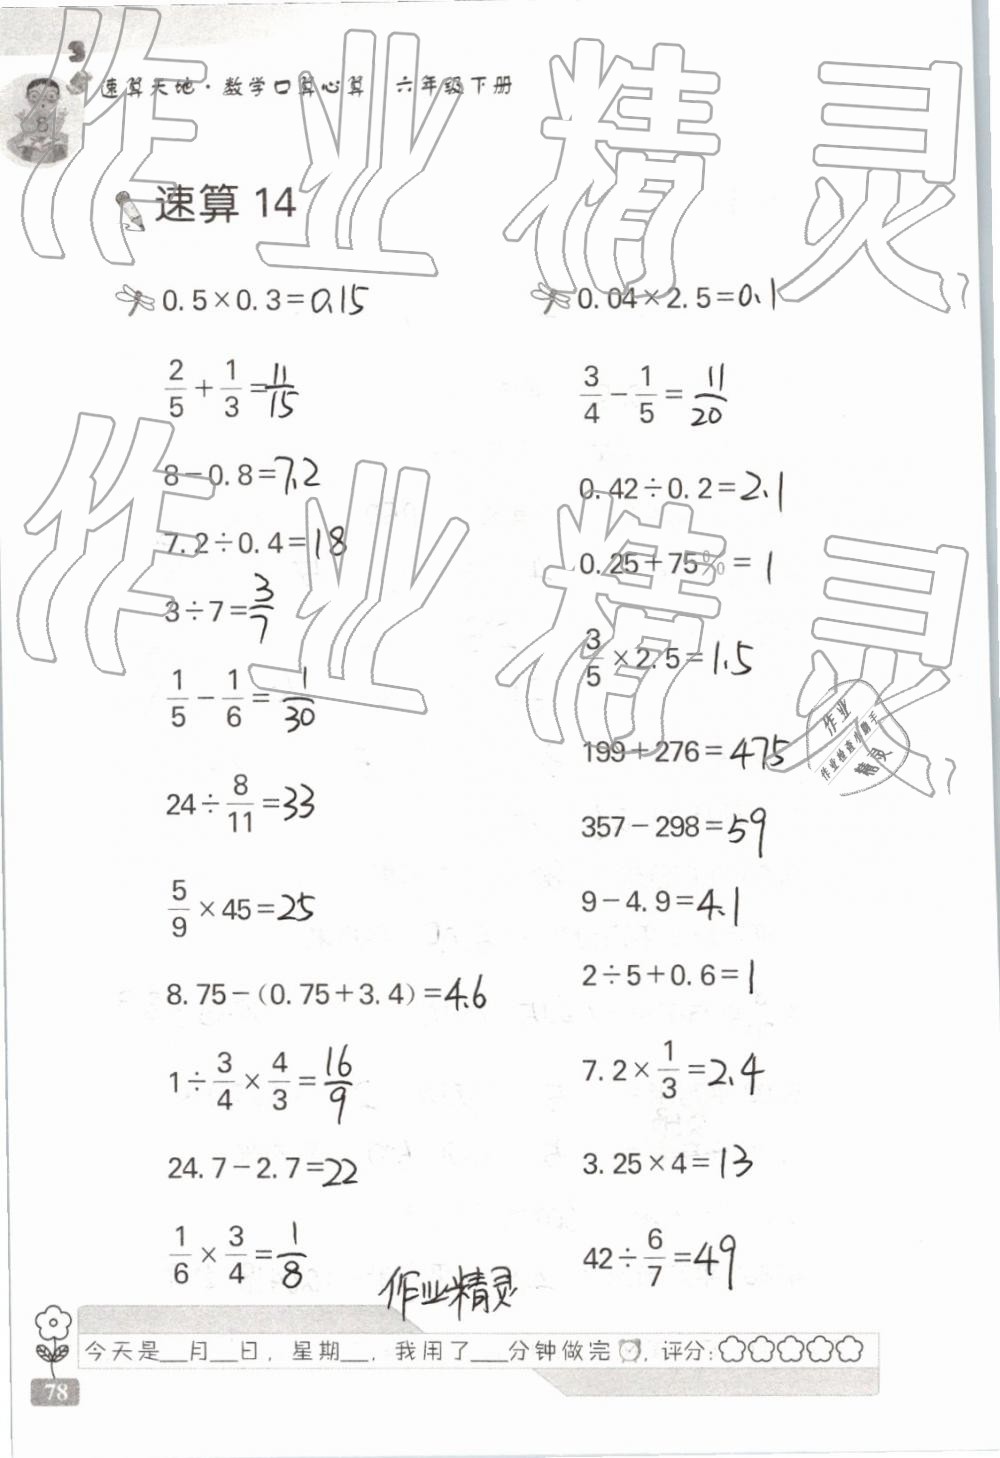 速算天地·数学口算心算 六年级下册
速算 14
0.5×0.3=0.15
0.04×2.5=0.1
2/5+1/3=11/15
3/4-1/5=11/20
8-0.8=7.2
0.42÷0.2=2.1
7.2÷0.4=18
0.25+75%=1
3÷7=3/7
3/5×2.5=1.5
1/5-1/6=1/30
199+276=475
24÷8/11=33
357-298=59
5/9×45=25
9-4.9=4.1
8.75-(0.75+3.4)=4.6
2÷5+0.6=1
1÷3/4×4/3=16/9
7.2×1/3=2.4
24.7-2.7=22
3.25×4=13
1/6×3/4=1/8
42÷6/7=49
作业精灵
今天是__月__日，星期__，我用了___分钟做完，评分：
78
作业精灵
作业精灵
作业
作业检查小助手
精灵